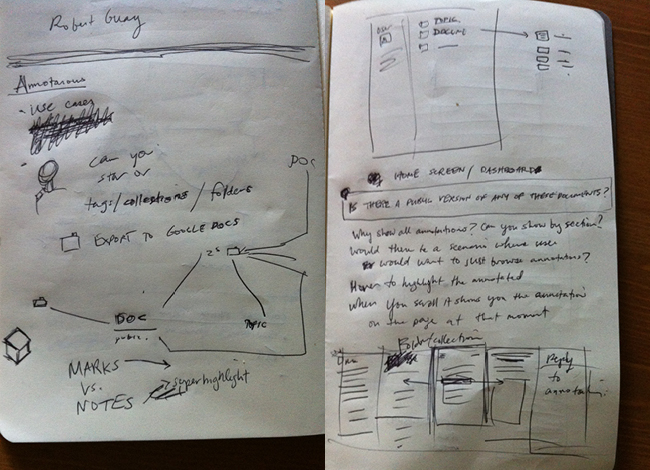 Robert Gray
Annotations
• Use cases
Can you
star or
tags/collections/folders
DOC
EXPORT TO GOOGLE DOCS
DOC
public.
TOPIC
MARKS
VS.
NOTES
superhighlight
User
TOPIC
DOCUMENT
HOME SCREEN / DASHBOARD
IS THERE A PUBLIC VERSION OF ANY OF THESE DOCUMENTS?
Why show all annotations? Can you show by section?
Would there be a scenario where user
would want to just browse annotations?
Hover to highlight the annotated
When you scroll it shows you the annotation
on the page at that moment
Folder/collection
Reply
to
annotation